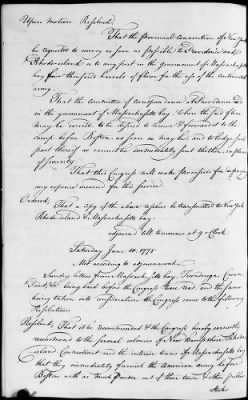 Upon motion Resolved,
That the provincial convention of New York
be requested to convey as soon as possible to Providence and
Rhode island or to any port in the government of Massachusetts
bay five thousand barrels of flour for the use of the continental
army.
That the committee of correspondence at Providence and
in the government of Massachusetts bay where the said flour
may be carried, to be desired to receive & forward it to the
camp before Boston as soon as may be, and to lodge such
part thereof as cannot be immediately sent thither, in places
of security.
That this Congress will make provision for defraying
any expence incurred for this service.
Ordered, That a copy of the above resolves be transmitted to New York
Rhode island & Massachusetts bay.
adjourned till tomorrow at 9 o'Clock.
Saturday June 10. 1775
Met according to adjournment.
Sundry letters from Massachusetts bay, Ticonderoga, Crown
Point, &c being laid before the Congress were read, and the same
being taken into consideration the Congress came to the following
Resolutions
Resolved, That it be recommended & the Congress hereby earnestly
recommend to the several colonies of New Hampshire, Rhode
Island Connecticut and the interior towns of Massachusetts bay
that they immediately furnish the American army before
Boston with as much powder out of their town & other publick